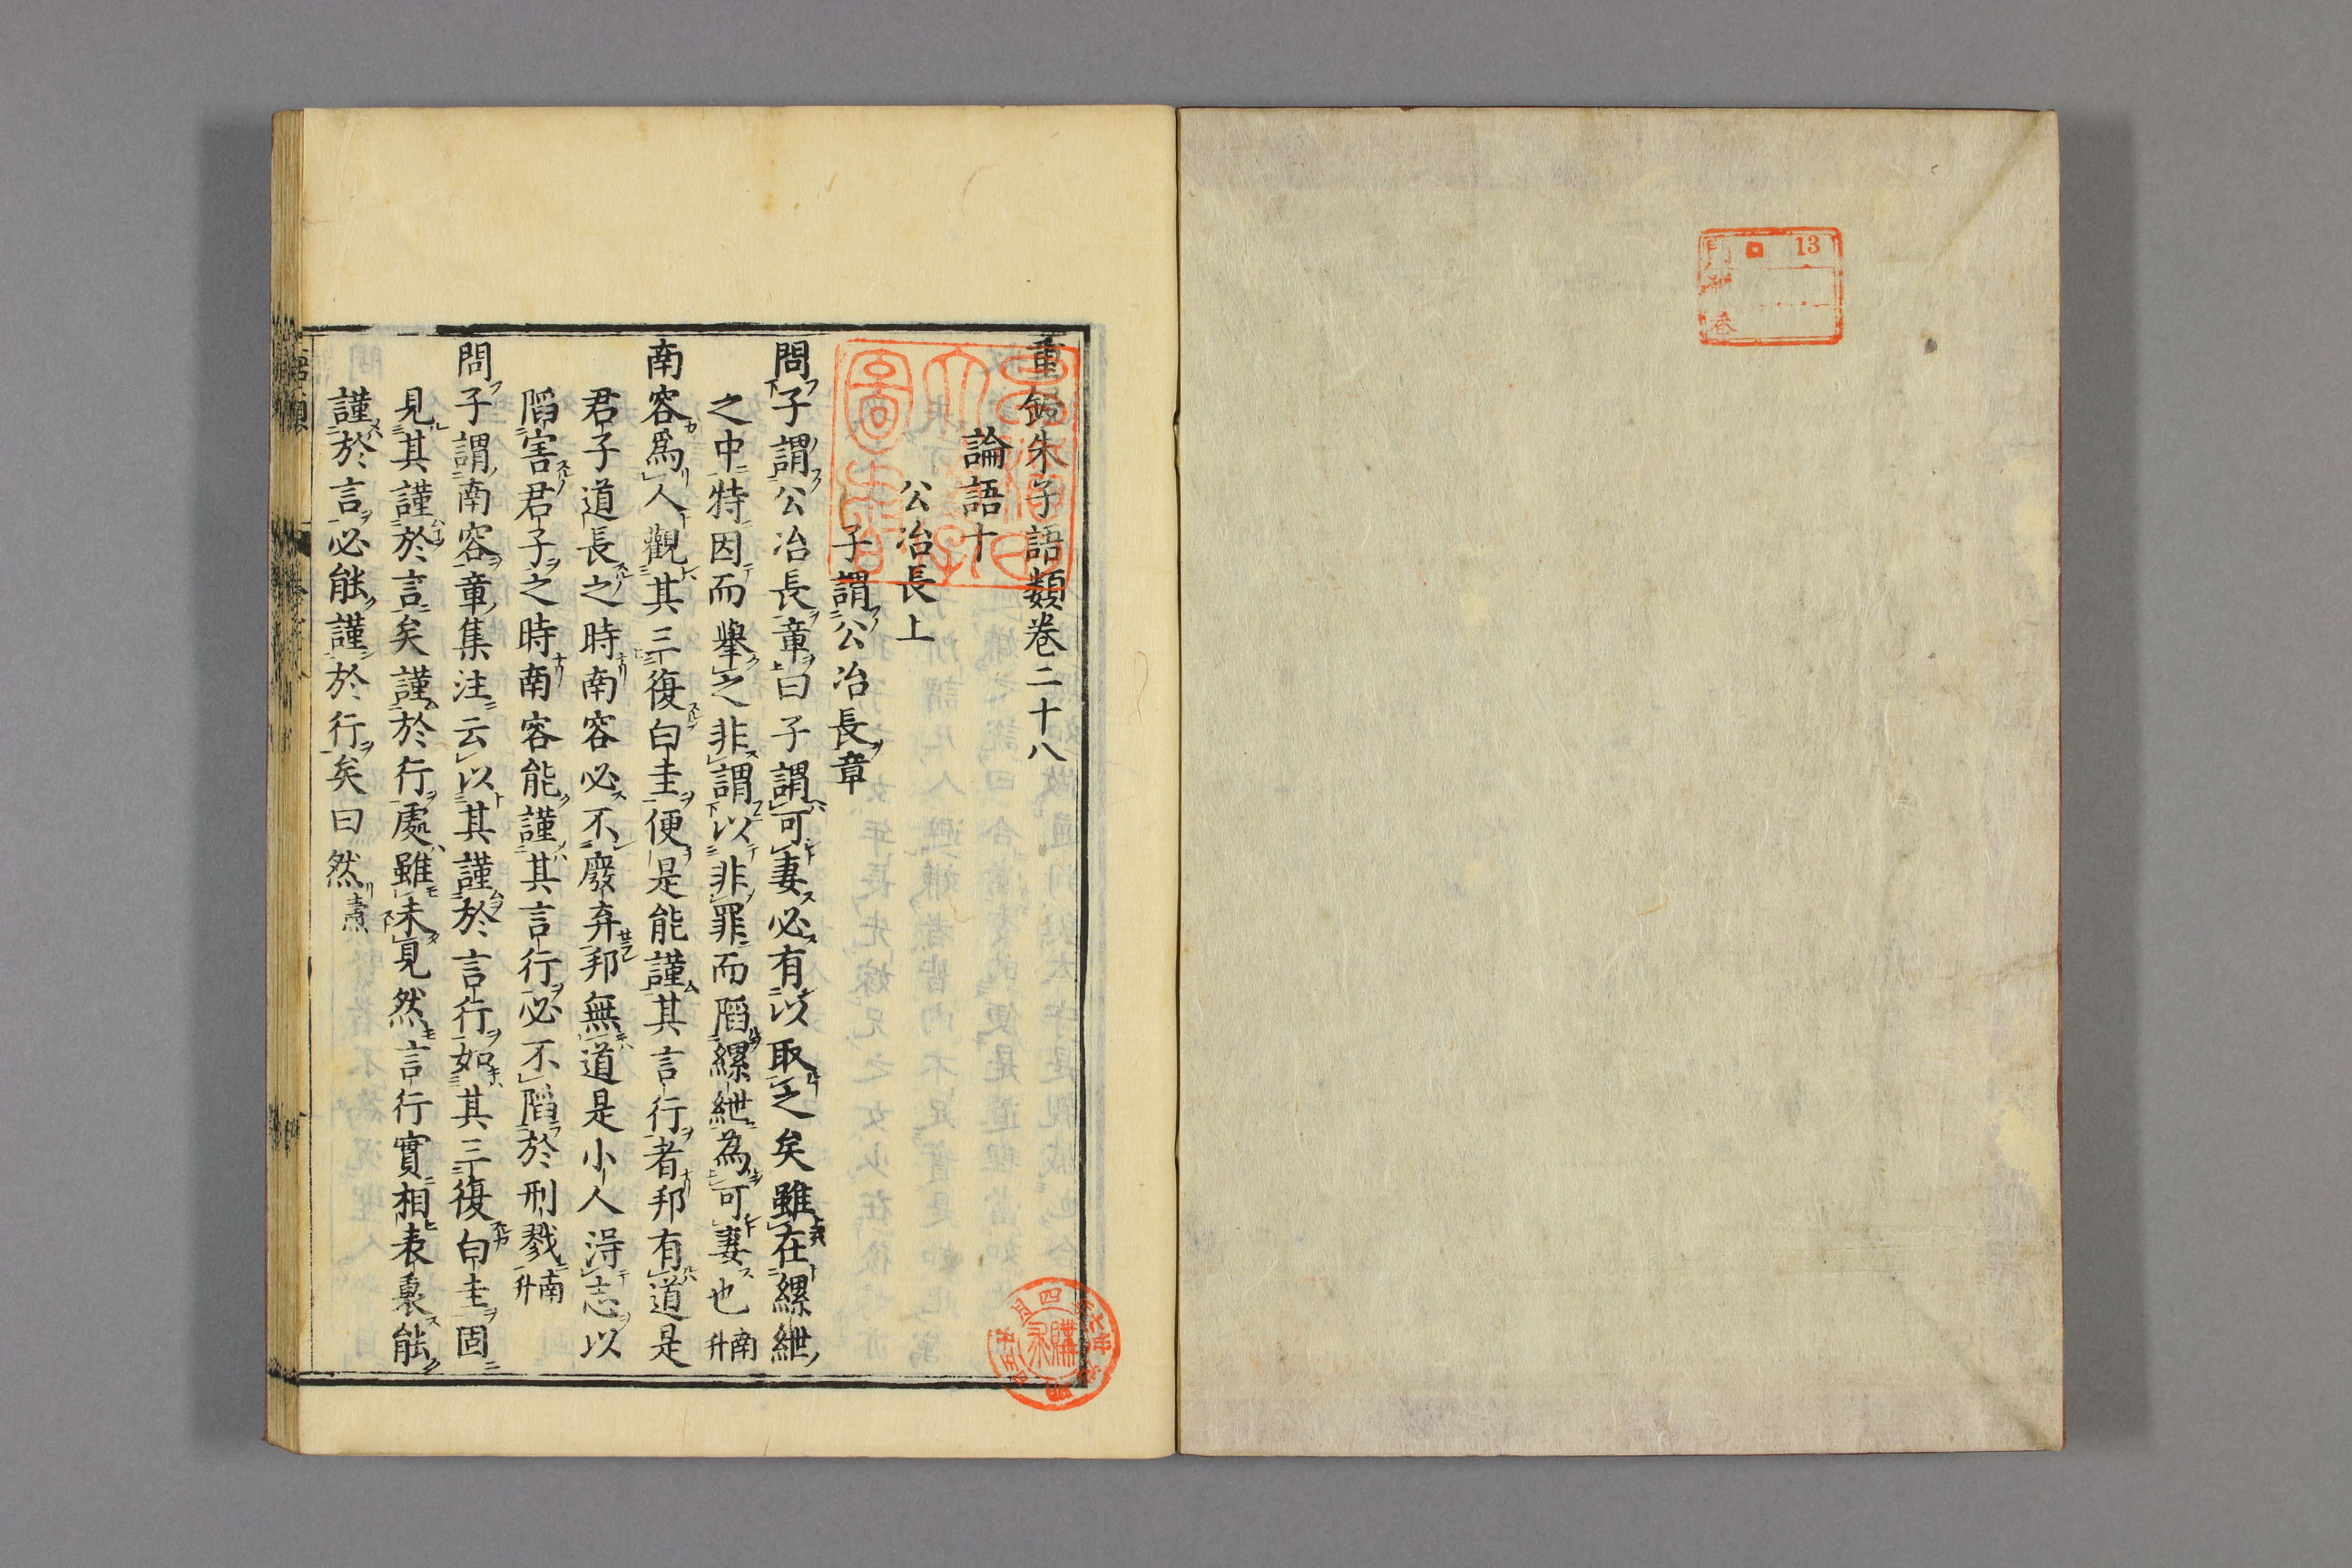 13
門
卷
重鋟朱子語類卷二十八
論語十
公冶長上
子謂公冶長章
問子謂公冶長章曰子謂可妻必有以取之矣雖在縲紲
之中特因而舉之非謂以非罪而陷縲紲為可妻也南升
南容爲人觀其三復白圭便是能謹其言行者邦有道是
君子道長之時南容必不廢弃邦無道是小人淂志以
陷害君子之時南容能謹其言行必不陷於刑戮南升
問子謂南容章集注云以其謹於言行如其三復白圭固
見其謹於言矣謹於行處雖未見然言行實相表裏能
謹於言必能謹於行矣曰然燾